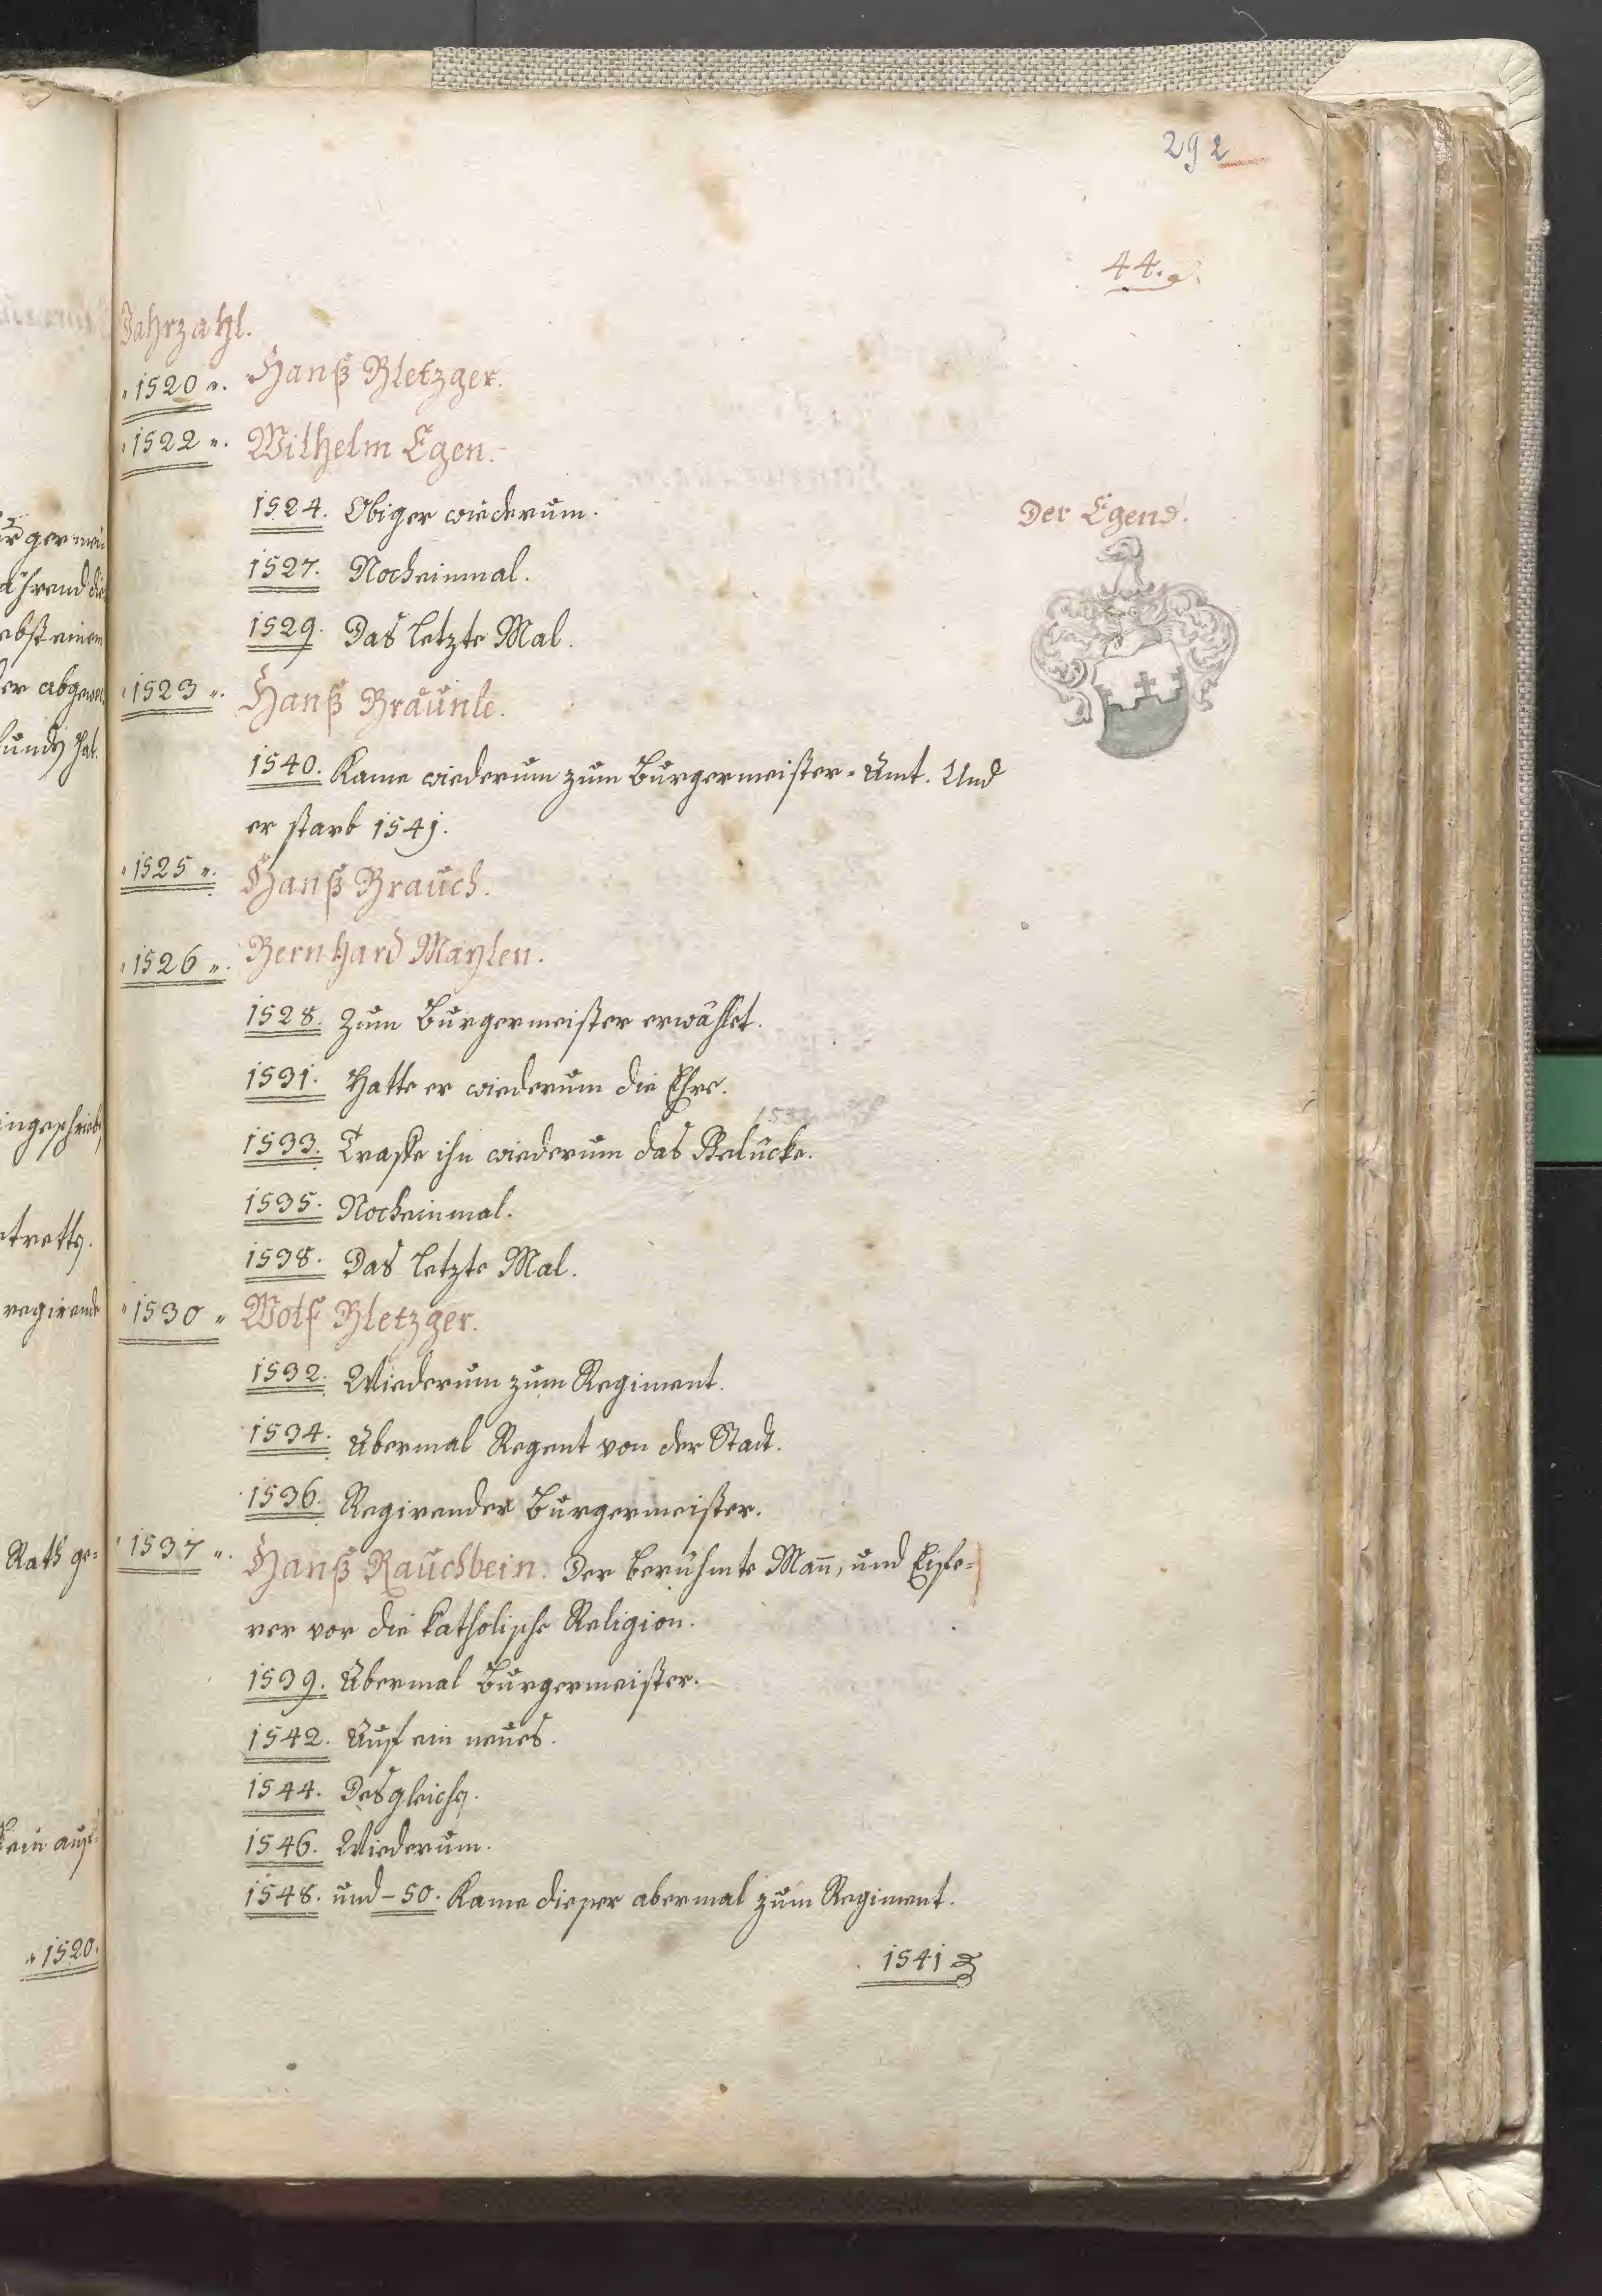 292
44.
Jahrzahl.
1520. Hanß Bletzger.
1522. Wilhelm Egen.
1524. Obiger wiederum.
Der Egend.
1527. Nocheinmal.
1529. Das letzte Mal.
1523. Hanß Bräunle.
1540. Kame wiederum zum Burgermeister-Amt. Und
er starb 1541.
1525. Hanß Brauch.
1526. Bernhard Maylen.
1528. Zum Burgermeister erwählet.
1531. Hatte er wiederum die Ehre.
1533. Traffe ihn wiederum das Gelücke.
1535. Nocheinmal.
1538. Das letzte Mal.
1530 Wolf Bletzger.
1532. Wiederum zum Regiment.
1534. Abermal Regent von der Stadt.
1536. Regirender Burgermeister.
1537. Hanß Rauchbein. Der berühmte Mañ, und Eife=
rer vor die katholische Religion.
1539. Abermal Burgermeister.
1542. Auf ein neues.
1544. Desgleichen.
1546. Wiederum.
1548. und -50. Kame dieser abermal zum Regiment.
1541
regirende
Rath ge=
1520.